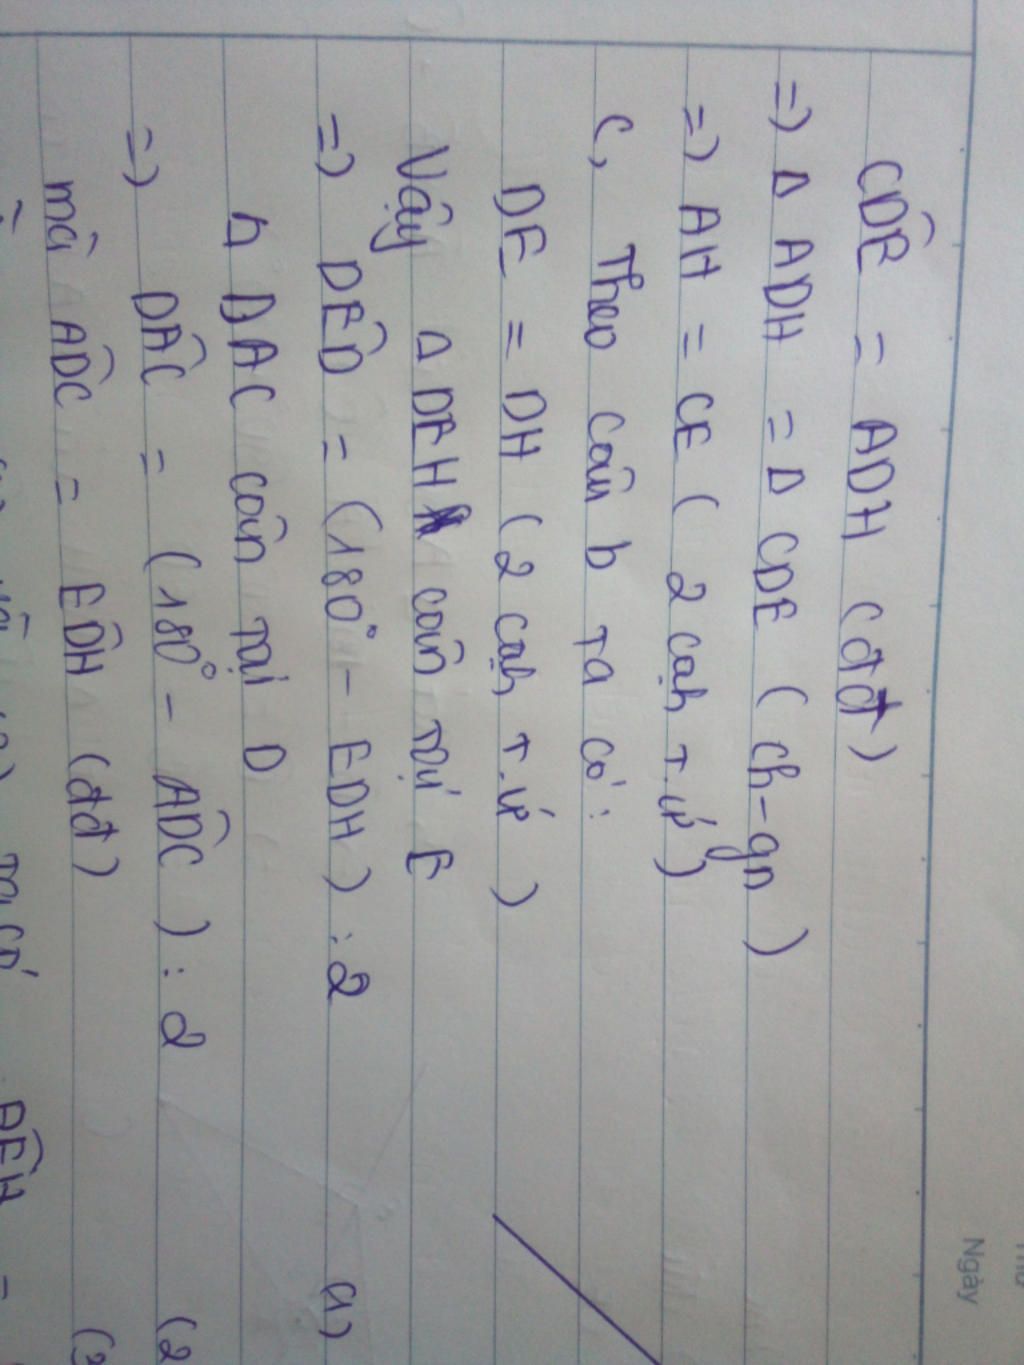 Ngày
CD̂E = AD̂H (đđ)
=) Δ ADH = Δ CDE ( ch-gn )
=) AH = CE ( 2 cạh t.ứ )
C, Theo câu b ta có :
DE = DH ( 2 cạh t.ứ )
Vậy Δ DEH cân tại E
=) DÊD = (180° - EDH ) : 2 (1)
Δ DAC cân tại D
=) DÂC = (180° - AD̂C ) : 2 (2
mà AD̂C = ED̂H (đđ) (3
ta có AÊH =